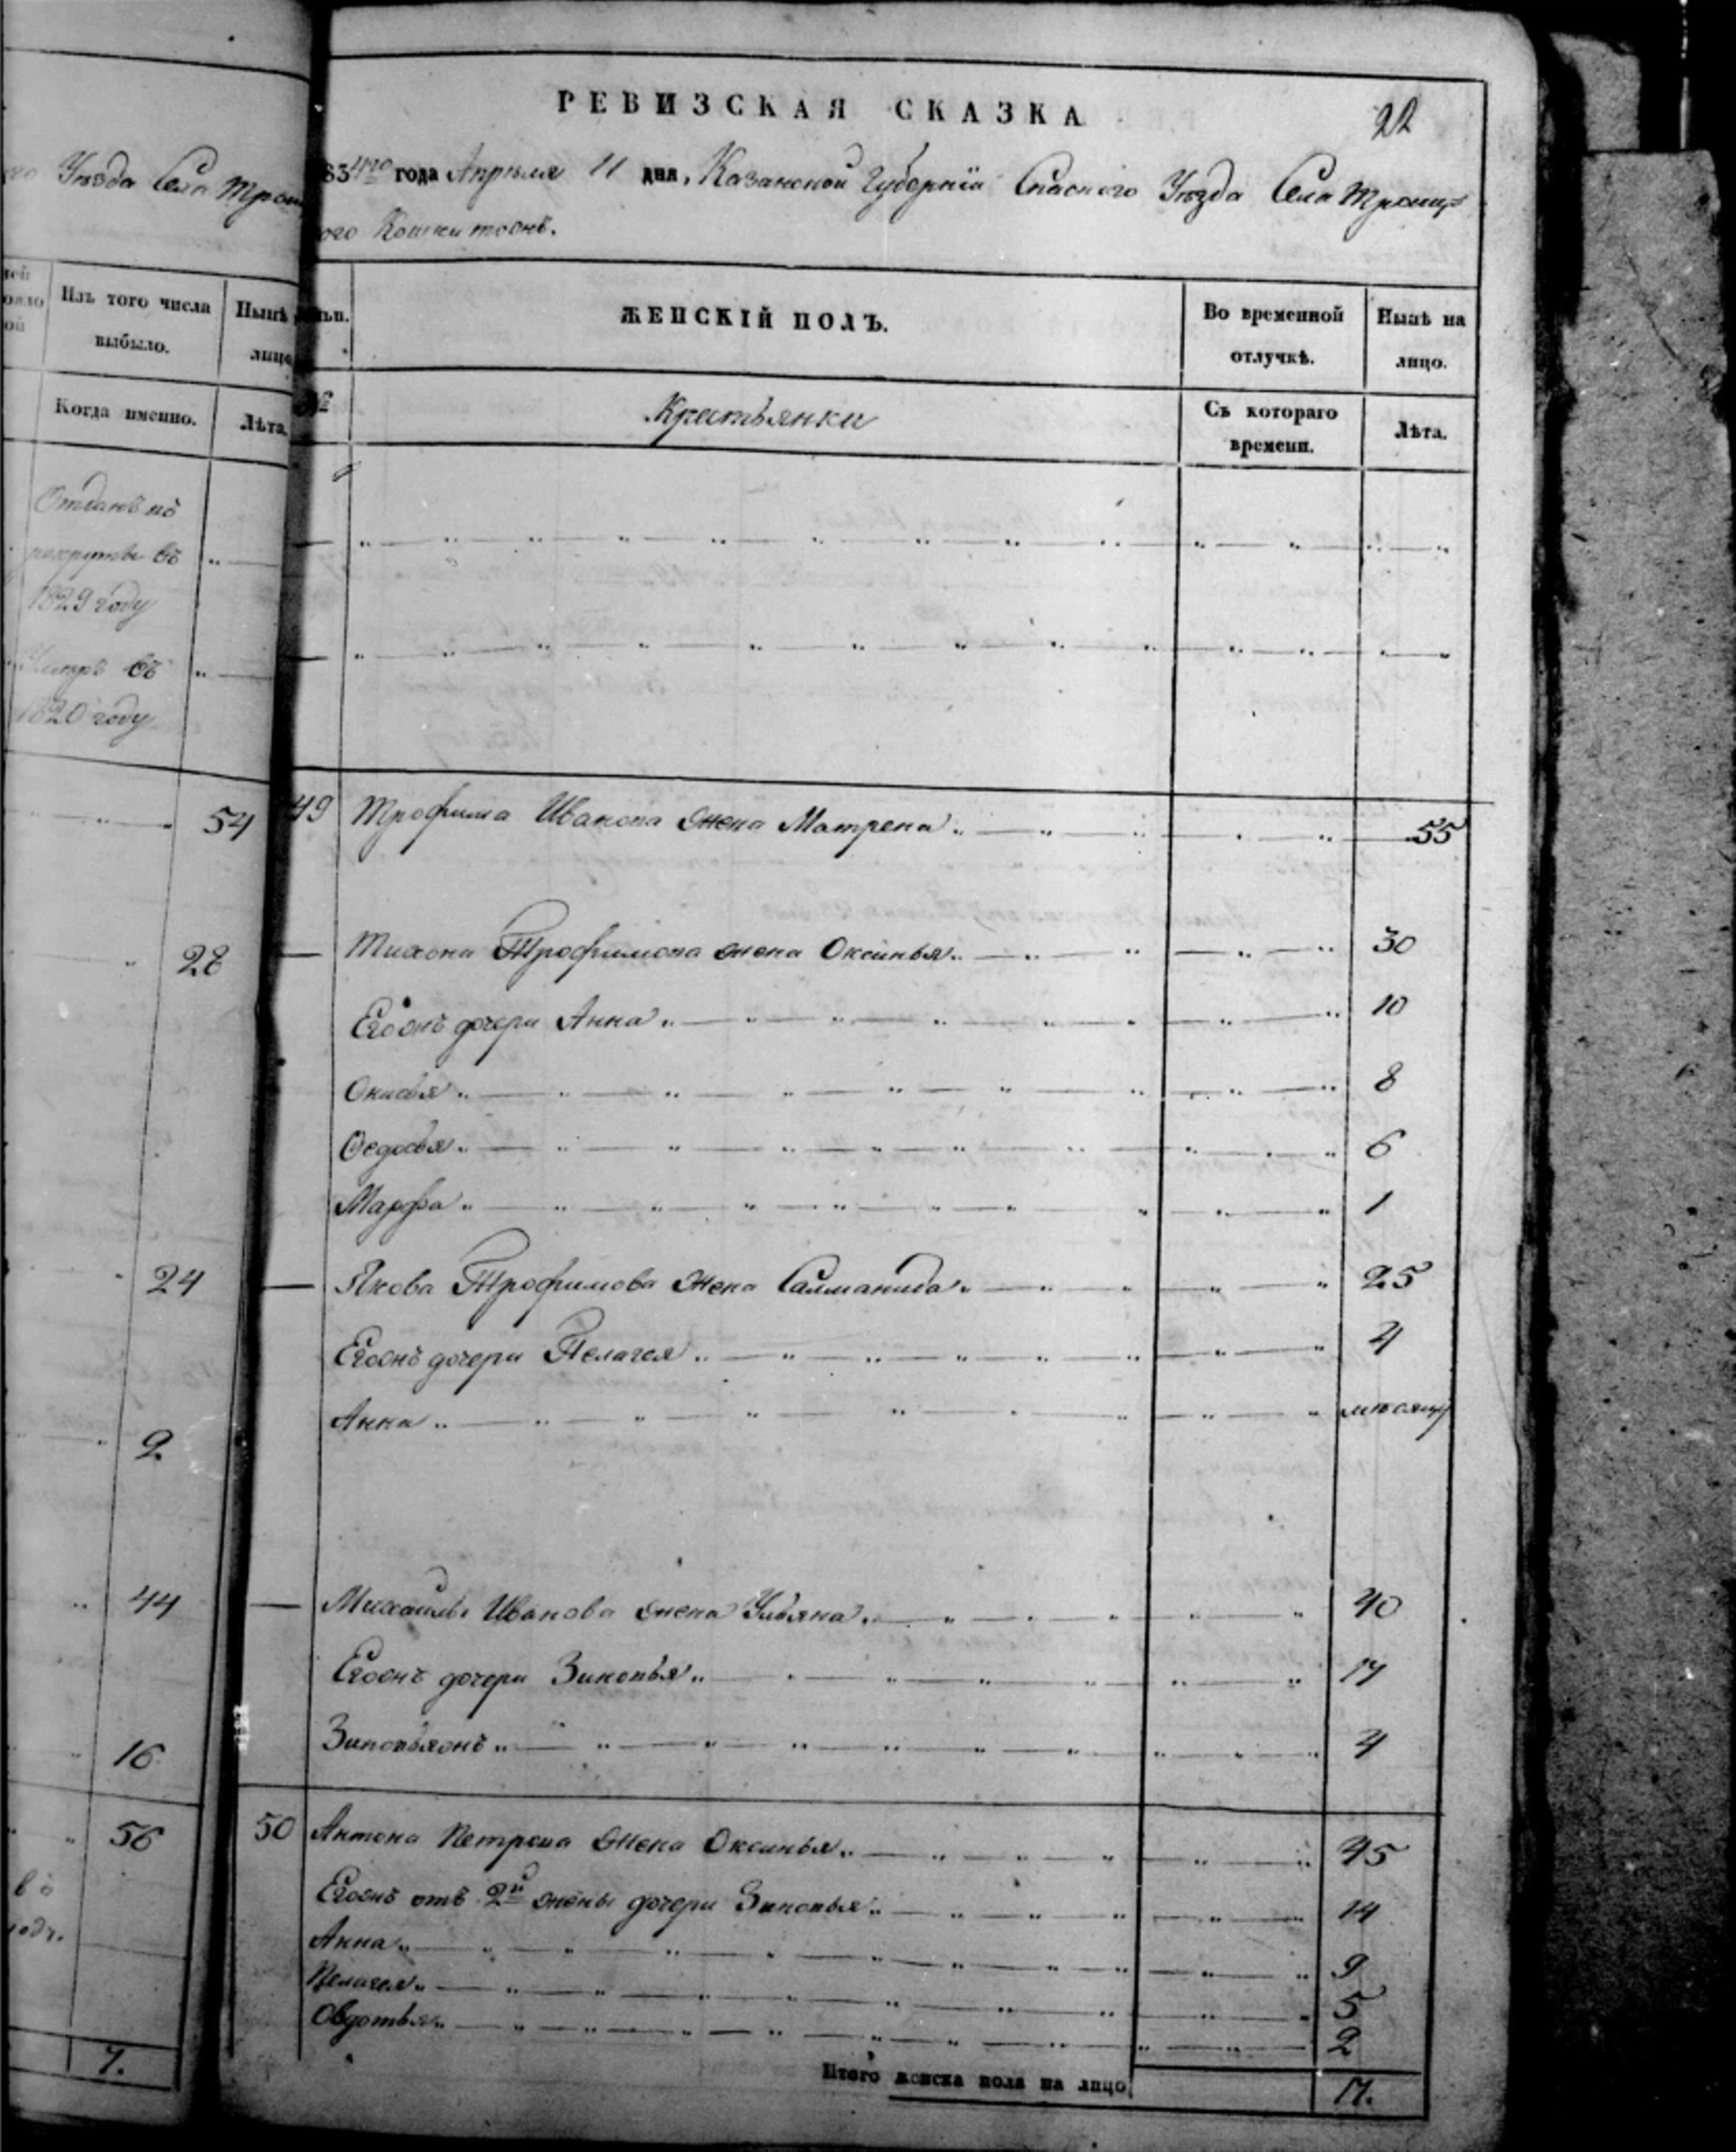 Уѣзда Села Трои
Изъ того числа
выбыло.
Нынѣ
лицо
Когда именно.
Лѣта.
Отданъ въ
рекруты въ
1829 году
въ
1820 году
54
28
24
2
44
16
56
7.
РЕВИЗСКАЯ СКАЗКА
22
834го года Апрѣля 11 дня, Казанской Губерніи Спаского Уѣзда Села Троиц=
ЖЕНСКІЙ ПОЛЪ.
Во временной
отлучкѣ.
Нынѣ на
лицо.
№
Крестьянки
Съ котораго
времени.
Лѣта.
49 Трофима Иванова жена Матрена 55
Тихона Трофимова жена Оксинья 30
Егожъ дочери Анна 10
8
Федосья 6
Марфа 1
Якова Трофимова жена Саламанида 25
Егожъ дочери Пелагея 4
Анна мѣсяцъ
Михаила Иванова жена Ульяна 40
Егожъ дочери Зиновья 17
4
50 Антона Петрова жена Оксинья 45
Егожъ отъ 2й жены дочери Зиновья 14
Анна 9
Пелагея 5
Овдотья 2
Итого женска пола на лицо 17.